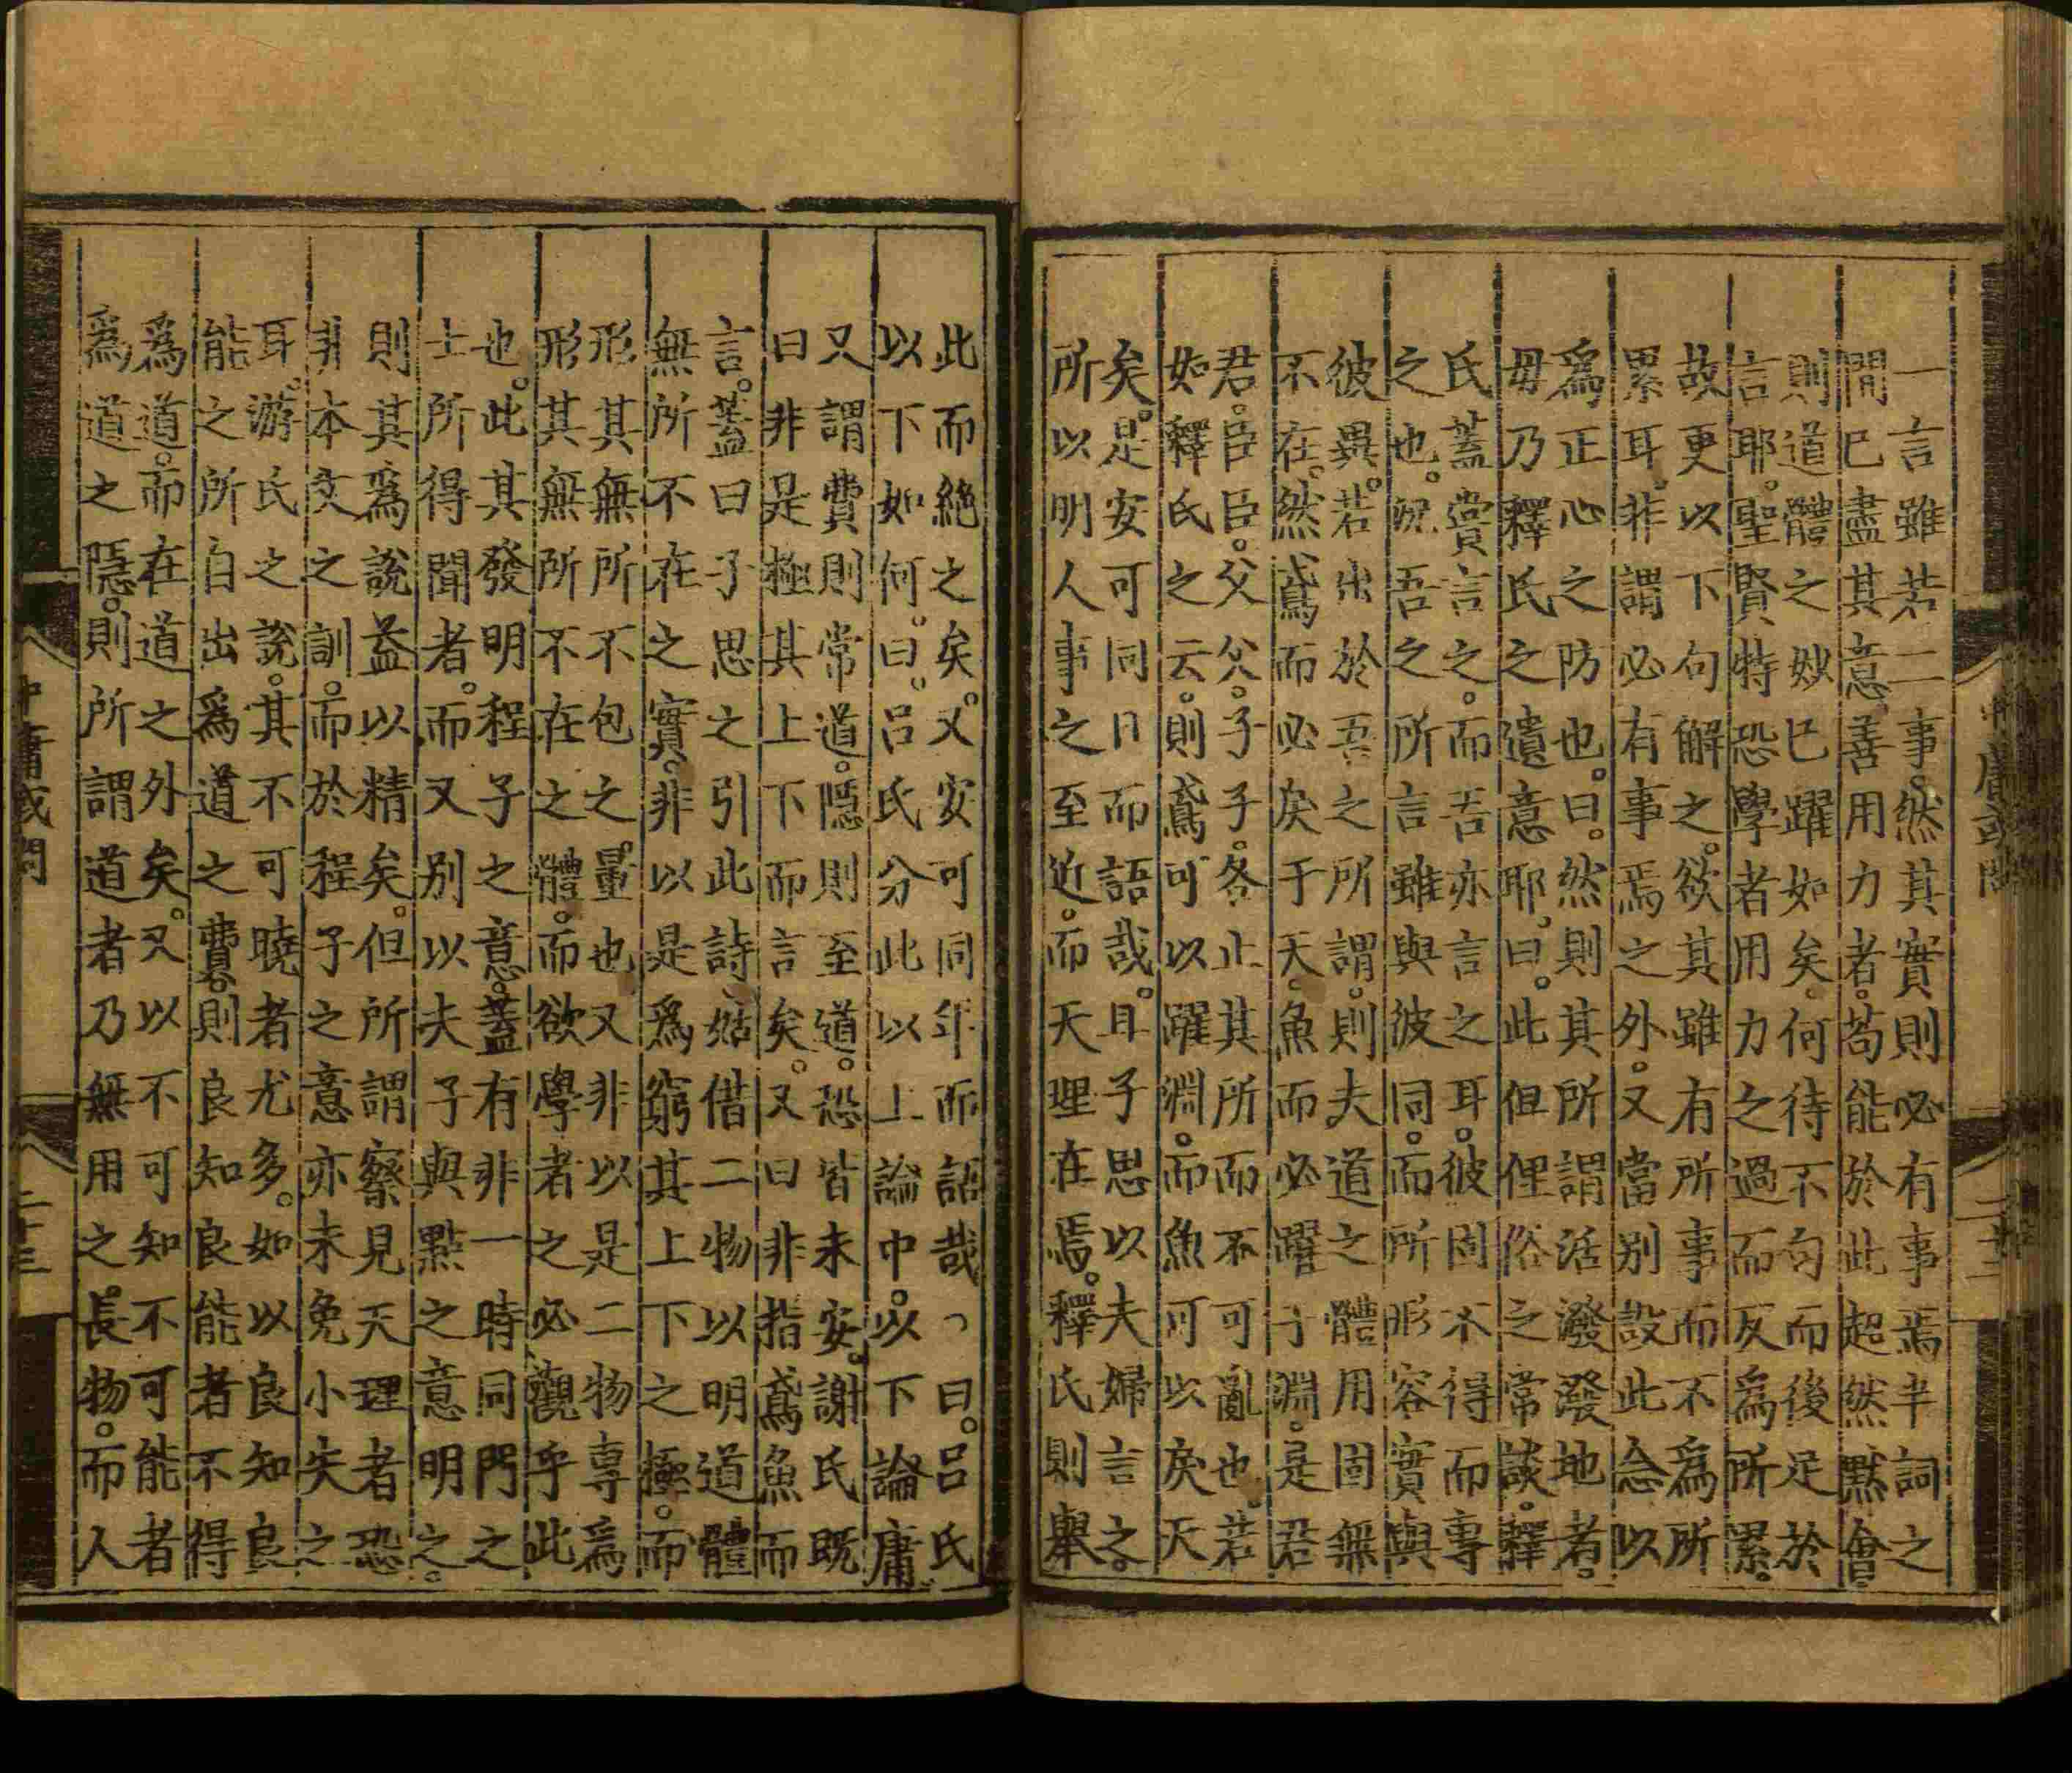 中庸或問
二十二
一言雖若二事。然其實則必有事焉半詞之
間已盡其意。善用力者。苟能於此超然黙會。
則道體之妙已躍如矣。何待不句而後足於
言耶。聖賢特恐學者用力之過而反為所累。
故更以下句解之。欲其雖有所事而不為所
累耳。非謂必有事焉之外。又當别設此念以
為正心之防也。曰。然則其所謂活潑潑地者。
毋乃釋氏之遺意耶。曰。此但俚俗之常談。釋
氏蓋嘗言之。而吾亦言之耳。彼固不得而専
之也。况吾之所言雖與彼同。而所形容實與
彼異。若出於吾之所謂。則夫道之體用固無
不在。然鳶而必戾于天。魚而必躍于淵。是君
君。臣臣。父父。子子。各止其所而不可亂也。若
如釋氏之云。則鳶可以躍淵。而魚可以戾天
矣。是安可同日而語哉。且子思以夫婦言之。
所以明人事之至近。而天理在焉。釋氏則舉
此而絶之矣。又安可同年而語哉〇曰。呂氏
以下如何。曰。呂氏分此以上論中。以下論庸。
又謂費則常道。隱則至道。恐皆未安。謝氏既
曰非是極其上下而言矣。又曰非指鳶魚而
言。蓋曰子思之引此詩姑借二物以明道體
無所不在之實。非以是為窮其上下之極。而
形其無所不包之量也。又非以是二物専為
形其無所不在之體。而欲學者之必觀乎此
也。此其發明程子之意。蓋有非一時同門之
士所得聞者。而又别以夫子與㸃之意明之。
則其為說益以精矣。但所謂察見天理者恐
非本文之訓。而於程子之意亦未免小失之
耳。游氏之說。其不可曉者尤多。如以良知良
能之所自出為道之費。則良知良能者不得
為道。而在道之外矣。又以不可知不可能者
為道之隱。則所謂道者乃無用之長物。而人
中庸或問
二十三